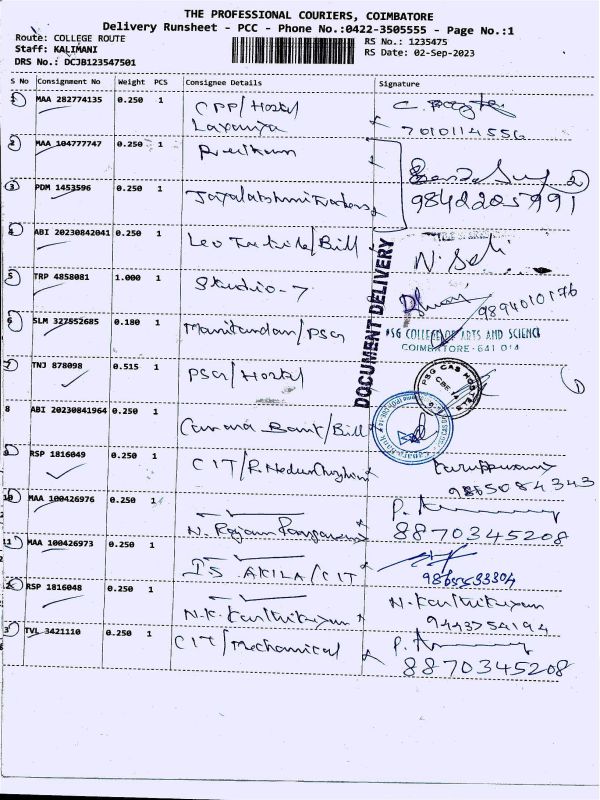 THE PROFESSIONAL COURIERS, COIMBATORE
Delivery Runsheet - PCC - Phone No.:0422-3505555 - Page No.:1
Route: COLLEGE ROUTE
Staff: KALIMANI
DRS No.: DCJB123547501
RS No.: 1235475
RS Date: 02-Sep-2023
S No Consignment No Weight PCS Consignee Details Signature
1 MAA 282774135 0.250 1 CPP/Hostel
Lavanya
7010114556
2 MAA 104777747 0.250 1
3 PDM 1453596 0.250 1 Jayalakshmi Traders
9842205991
4 ABI 20230842041 0.250 1 Leo /Bill N. Selvi
5 TRP 4858081 1.000 1 Studio-7
9894010176
6 SLM 327552685 0.180 1 Manikandan/PSG
DOCUMENT DELIVERY
PSG COLLEGE OF ARTS AND SCIENCE
COIMBATORE-641 014
7 TNJ 878098 0.515 1 PSG/Hostel
PSG CAS HOSTELS
CBE-14
8 ABI 20230841964 0.250 1 Canara Bank/Bill
9 RSP 1816049 0.250 1 CIT/R. Nedunchezhian Karuppusamy
9865084343
10 MAA 100426976 0.250 1
N. Rajam
8870345208
11 MAA 100426973 0.250 1
IS AKILA/CIT
12 RSP 1816048 0.250 1
N.K. Karthikeyan N. Karthikeyan
9443754194
13 TVL 3421110 0.250 1 CIT/Mechanical
8870345208